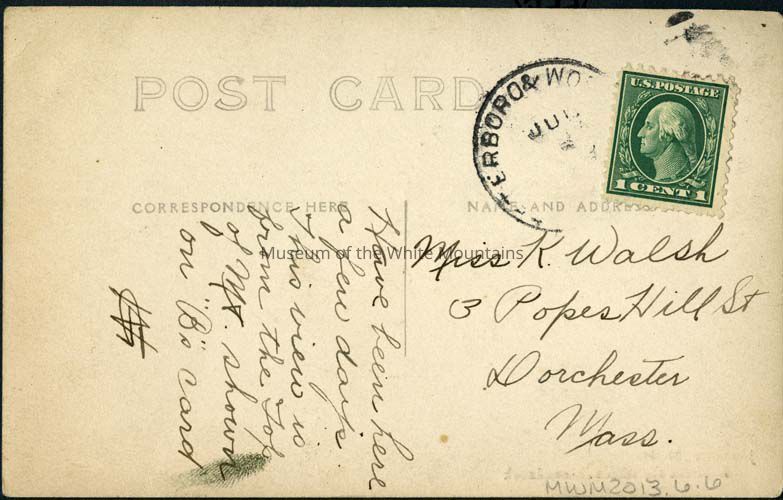 POST CARD
ERBORO & WO
JU
U.S. POSTAGE
1 CENT 1
CORRESPONDENCE HERE
NAME AND ADDRESS
Have been here
a few days
this view is
from the top
of Mt. shown
on "B's" card
Miss K. Walsh
3 Popes Hill St
Dorchester
Mass.
Museum of the White Mountains
MWM2013.6.6